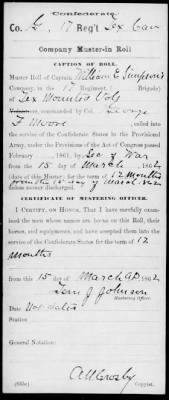 Confederate.
Co. G, 17 Reg't Tex Cav
Company Muster-in Roll
CAPTION OF ROLL.
Muster Roll of Captain William E. Simpson's
Company, in the 17 Regiment, (            Brigade)
of Tex Mounted Vols
commanded by Col. George
F Moore, called into
the service of the Confederate States in the Provisional
Army, under the Provisions of the Act of Congress passed
February    , 1861, by Sec of War
from the 15 day of March, 1862
(date of this Muster) for the term of 12 months
from the 15 day of March 1862
unless sooner discharged.
CERTIFICATE OF MUSTERING OFFICER.
I CERTIFY, ON HONOR, That I have carefully examined
the men whose names are borne on this Roll, their
horses, and equipments, and have accepted them into the
service of the Confederate States for the term of 12
months
from this 15 day of March AD, 1862
J Johnson
Mustering Officer.
Date Not dated
Station
General Notation:
A M Crosby
Copyist.